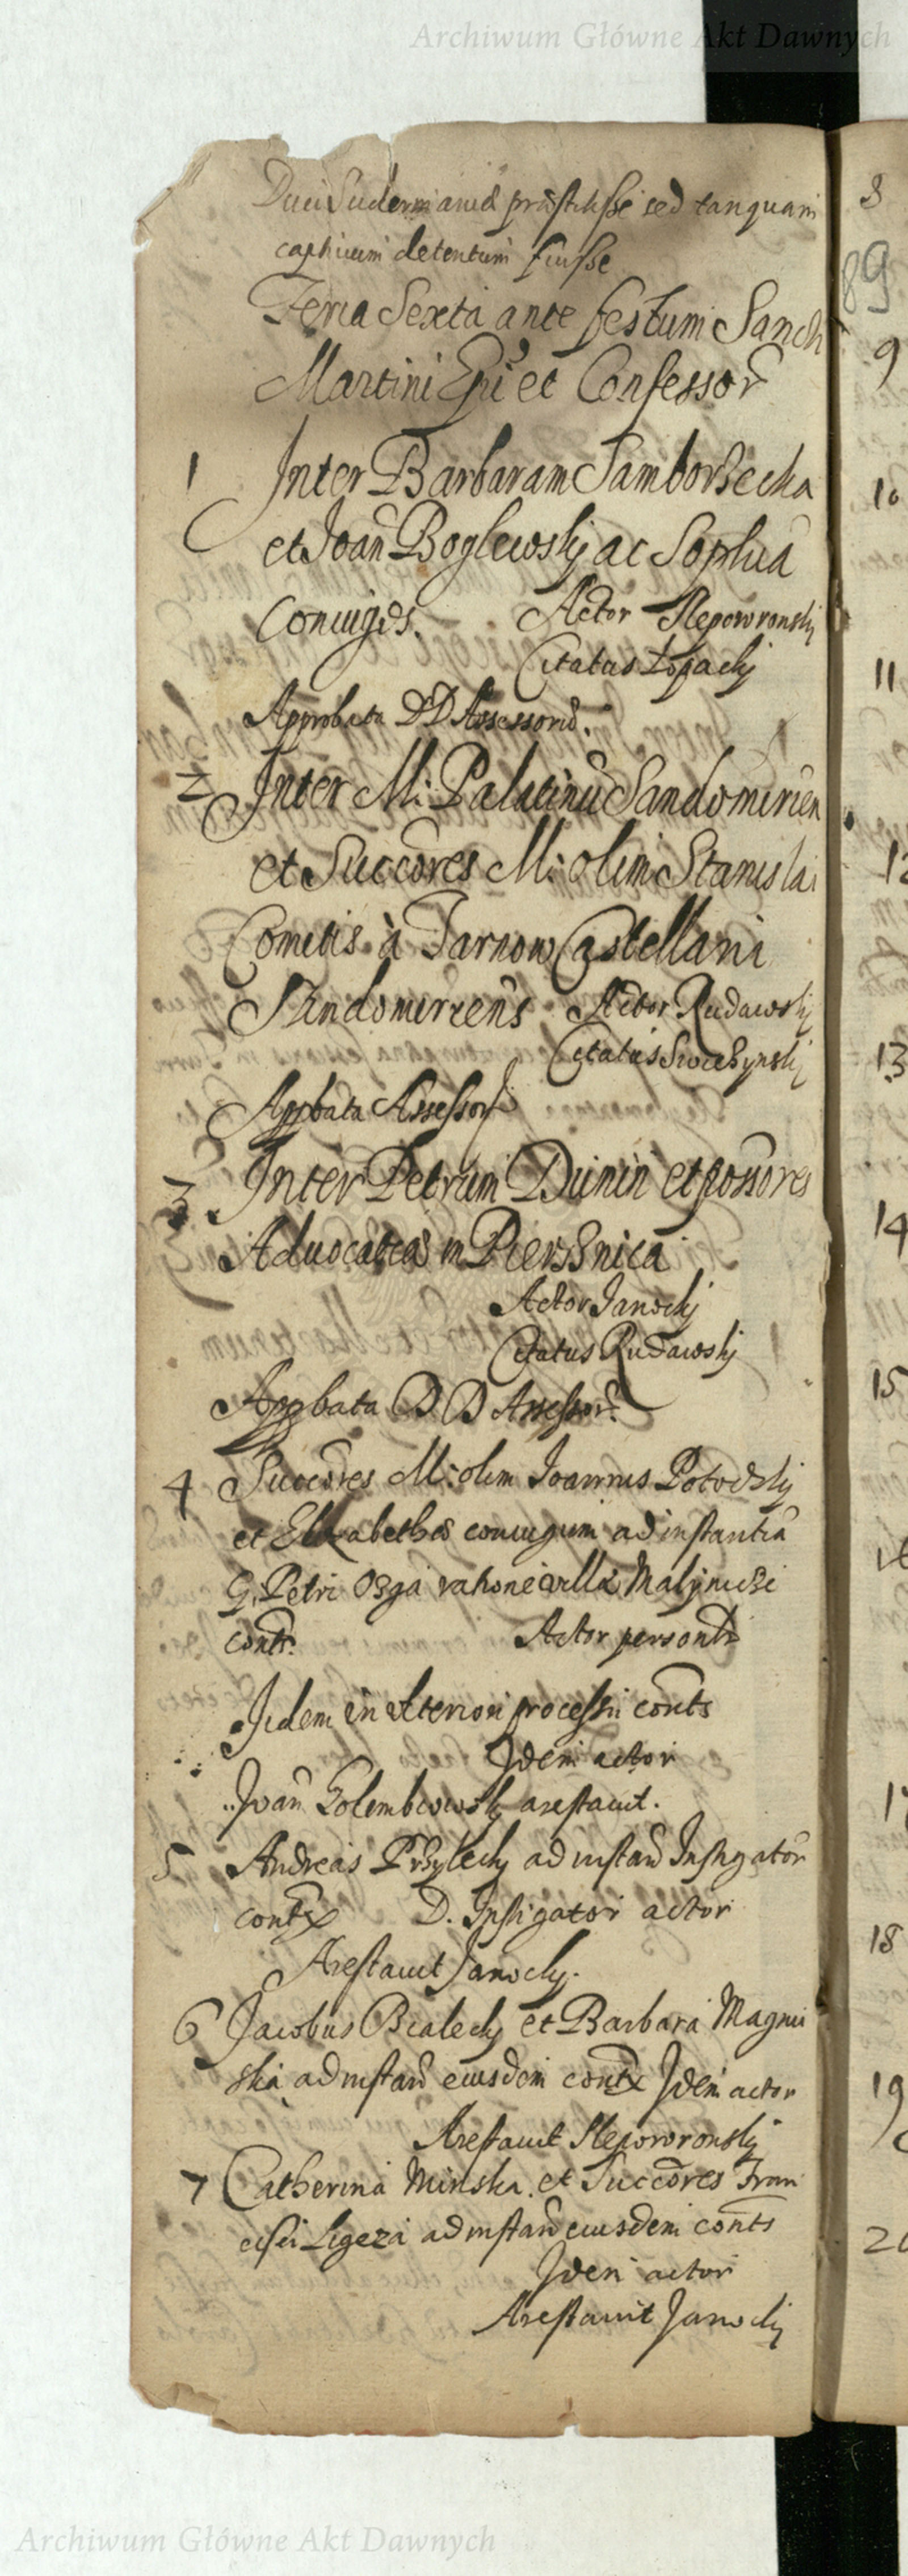 Archiwum Główne Akt Dawnych
Duci Sudermaniae praestitisse sed tanquam
captivum detentum fuisse
Feria Sexta ante festum Sancti
Martini Epi et Confessor
1 Inter Barbaram Samborzecka
et Joan Boglewskij ac Sophia
Coniuges. Actor Slepowronskij
Citatus Łopackij
Approbata DD Assessorū.
2 Inter M: Palatinū Sandomirien
et Succores M: olim Stanislai
Comitis à Tarnow Castellani
Sandomiriens Actor Rudawskij
Citatus
Appbata Assessor
3. Inter Petrum Dunin et possores
Advocatiae in Pierśnica
Actor Janockij
Citatus Rudawskij
Appbata DD Assessor.
4 Succores M: olim Joannis Potockij
et Elizabethae coniugum ad instantia
G. Petri Ozga ratione villae
conts. Actor
Jidem in ulteriori processu conts
Idem actor
Joan Golembiowskij arestavit.
5 Andreas Przyleckij ad instan Instigator
contx D. Instigator actor
Arestavit Janockij.
6 Jacobus Bialeckij et Barbara Magnu
ska ad instan eiusdem contx Idem actor
Arestavit Slepowronskij
7 Catherina Minska et Succores Fran
cisci Ligeza ad instan eiusdem conts
Idem actor
Arestavit Janockij
8
89
9
10
11
12
13
14
15
18
19
20
Archiwum Główne Akt Dawnych